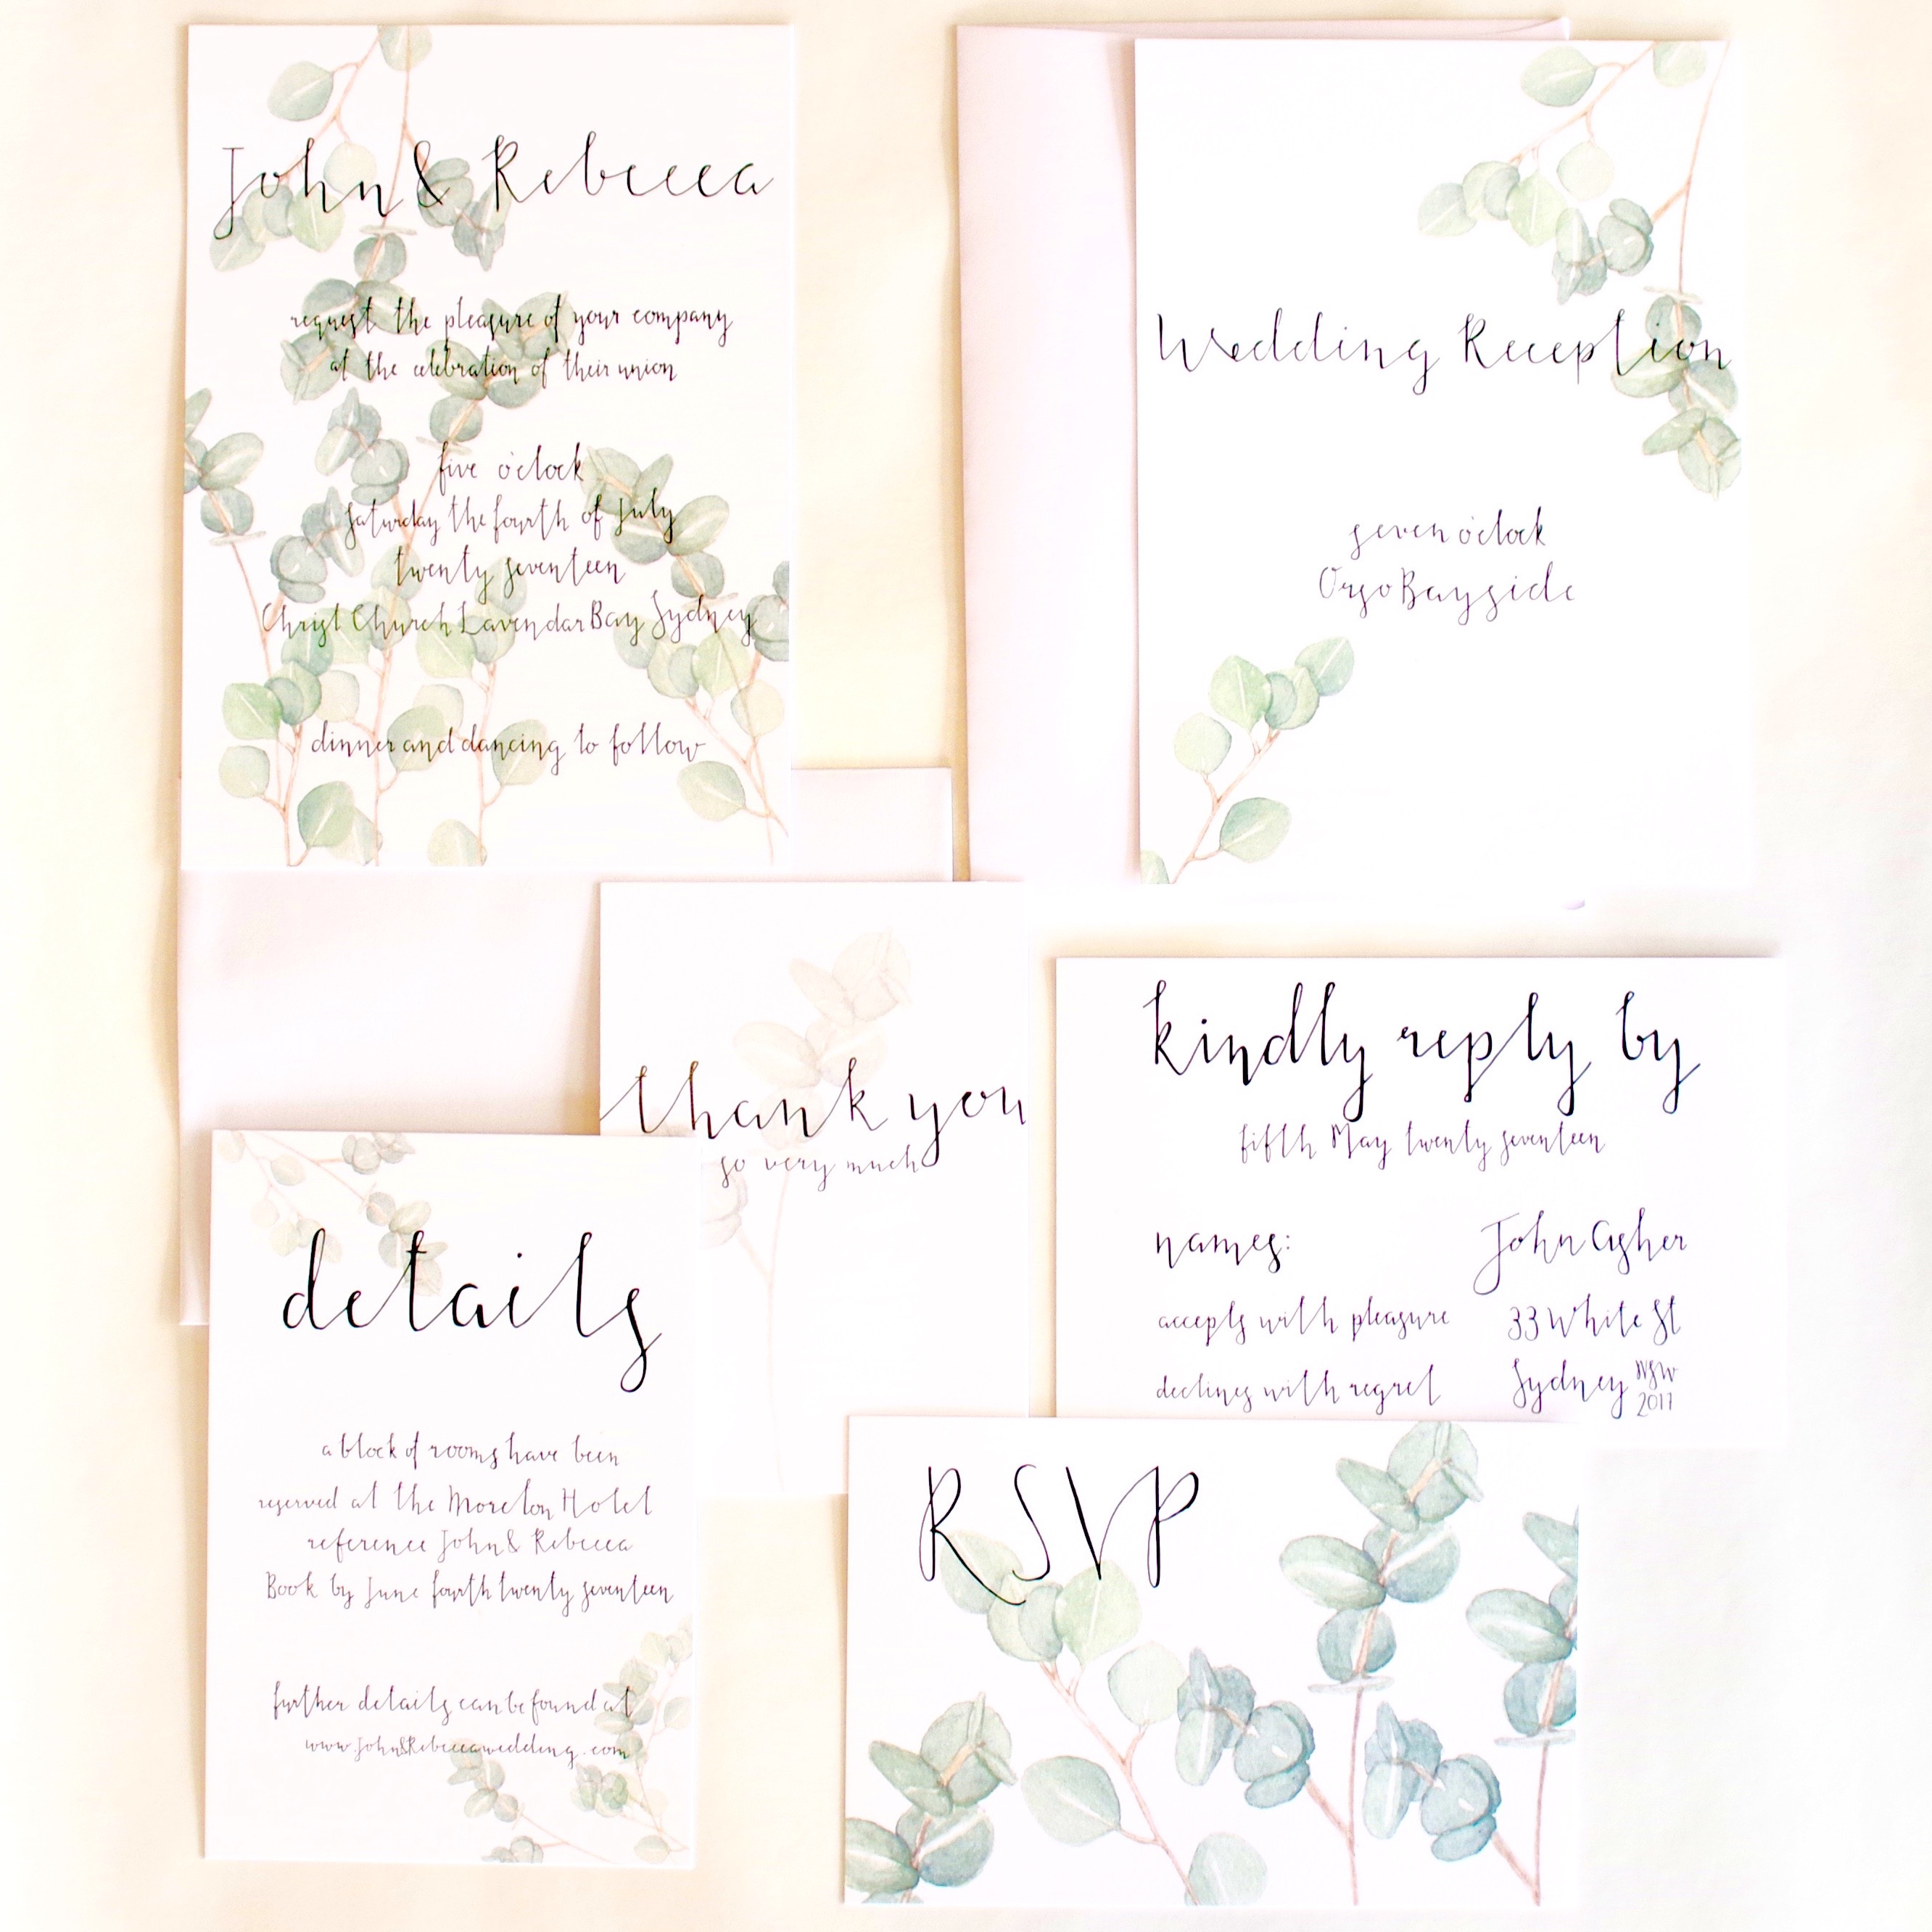 John & Rebecca
request the pleasure of your company
at the celebration of their union
five o'clock
Saturday the fourth of July
twenty seventeen
Christ Church Lavendar Bay Sydney
dinner and dancing to follow
Wedding Reception
seven o'clock
Orso Bayside
thank you
so very much
kindly reply by
fifth May twenty seventeen
names:
accepts with pleasure
declines with regret
John Asher
33 White St
Sydney NSW
2017
details
a block of rooms have been
reserved at the Moreton Hotel
reference John & Rebecca
Book by June fourth twenty seventeen
further details can be found at
www.John&Rebeccawedding.com
RSVP